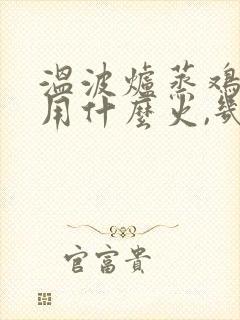 温波爐蒸鸡
用什麼火,幾
官富貴